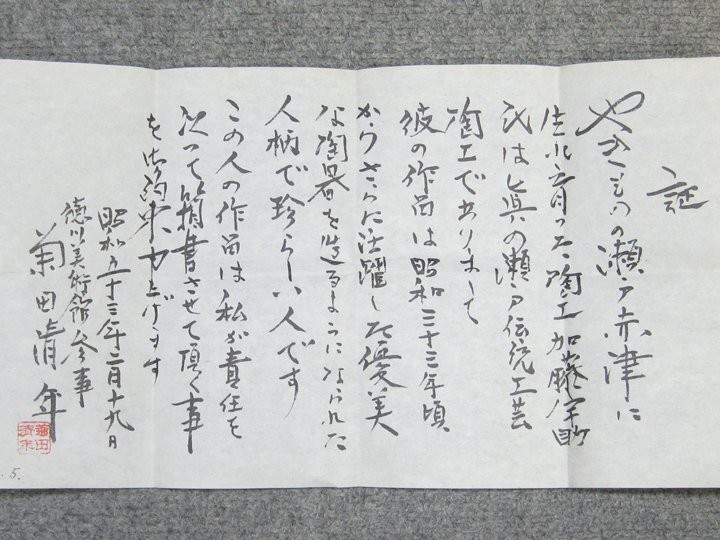 証
やきものの瀬戸赤津に
生れ育った陶工加藤
氏は真の瀬戸伝統工芸
陶工でありまして
彼の作品は昭和三十三年頃
からさらに活躍した優美
な陶器を造るようになられた
人柄で珍らしい人です
この人の作品は私が責任を
以って箱書させて頂く事
を御約束申上げます
昭和五十三年二月十九日
徳川美術館参事
菊田清年
菊田清年
.5.